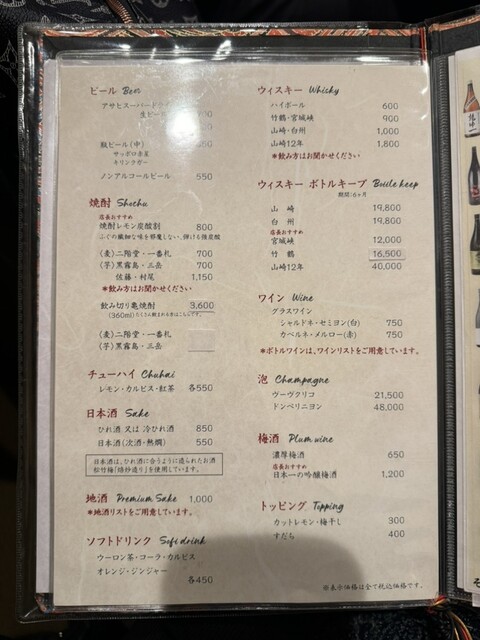 ビール Beer
アサヒスーパードライ
生ビール
瓶ビール(中)
サッポロ赤星
キリンラガー
ノンアルコールビール 550
焼酎 Shochu
店長おすすめ
焼酎レモン炭酸割 800
ふぐの繊細な味を邪魔しない、弾ける強炭酸
(麦)二階堂・一番札 700
(芋)黒霧島・三岳 700
佐藤・村尾 1,150
*飲み方はお聞かせください
飲み切り亀焼酎 3,600
(360ml)たくさん飲まれる方はこちらです。
(麦)二階堂・一番札
(芋)黒霧島・三岳
チューハイ Chuhai
レモン・カルピス・紅茶 各550
日本酒 Sake
ひれ酒 又は 冷ひれ酒 850
日本酒(次酒・熱燗) 550
日本酒は、ひれ酒に合うように造られたお酒
松竹梅「焙炒造り」を使用しています。
地酒 Premium Sake 1,000
*地酒リストをご用意しています。
ソフトドリンク Soft drink
ウーロン茶・コーラ・カルピス
オレンジ・ジンジャー
各450
ウィスキー Whicky
ハイボール 600
竹鶴・宮城峡 900
山崎・白州 1,000
山崎12年 1,800
*飲み方はお聞かせください
ウィスキー ボトルキープ Bottle keep
期間:6ヶ月
山 崎 19,800
白 州 19,800
店長おすすめ
宮城峡 12,000
竹 鶴 16,500
山崎12年 40,000
ワイン Wine
グラスワイン
シャルドネ・セミヨン(白) 750
カベルネ・メルロー(赤) 750
*ボトルワインは、ワインリストをご用意しています。
泡 Champagne
ヴーヴクリコ 21,500
ドンペリニヨン 48,000
梅酒 Plum wine
濃厚梅酒 650
店長おすすめ
日本一の吟醸梅酒 1,200
トッピング Topping
カットレモン・梅干し 300
すだち 400
※表示価格は全て税込価格です。